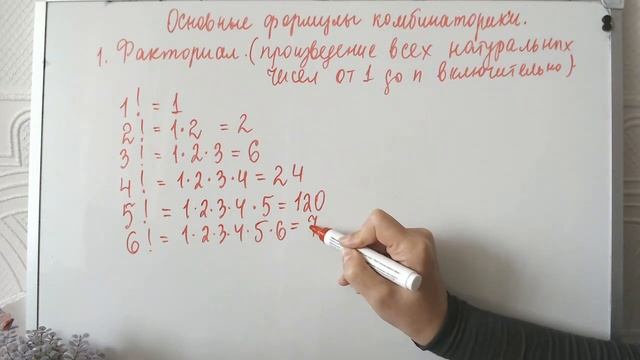 Основные формулы комбинаторики.
1. Факториал. (произведение всех натуральных
чисел от 1 до n включительно).
1! = 1
2! = 1·2 = 2
3! = 1·2·3 = 6
4! = 1·2·3·4 = 24
5! = 1·2·3·4·5 = 120
6! = 1·2·3·4·5·6 = 7